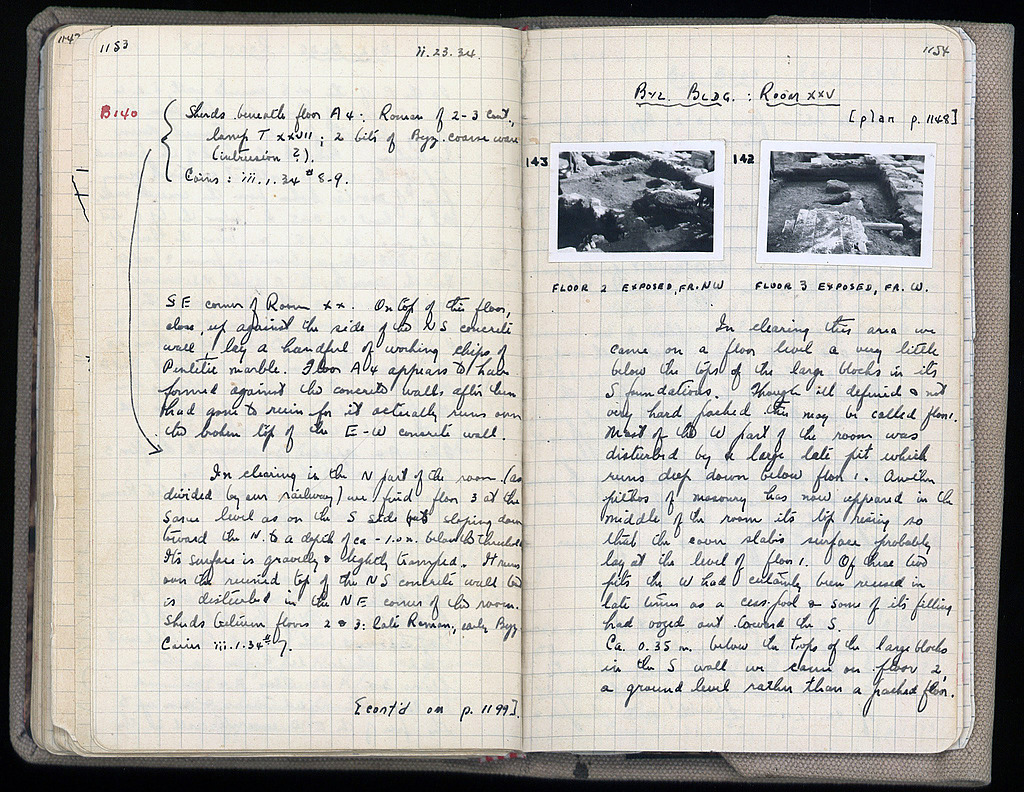 1147
1153
ii.23.34.
B140
Sherds beneath floor A4: Roman of 2-3 cent.,
lamp T XXVII; 2 bits of Byz. coarse ware
(intrusion?).
Coins: iii.1.34 # 8-9.
SE corner of Room XX. On top of this floor,
close up against the side of the NS concrete
wall, lay a handful of working chips of
Pentelic marble. Floor A4 appears to have
formed against the concrete walls after them
had gone to ruin for it actually runs over
the broken top of the E-W concrete wall.
In clearing in the N part of the room (as
divided by our railway) we find floor 3 at the
same level as on the S side but sloping down
toward the N. to a depth of ca -1.0 m. below the threshold
Its surface is gravelly & slightly tramped. It runs
over the ruined top of the NS concrete wall but
is disturbed in the NE corner of the room.
Sherds between floors 2 & 3: late Roman, early Byz.
Coins iii.1.34 # 7.
[cont'd on p. 1199].
1154
BYZ. BLDG. : ROOM XXV
[plan p. 1148]
143
142
FLOOR 2 EXPOSED, FR. NW
FLOOR 3 EXPOSED, FR. W.
In clearing this area we
came on a floor level a very little
below the tops of the large blocks in its
S foundations. Though ill defined & not
very hard packed this may be called floor 1.
Most of the W part of the room was
disturbed by a large late pit which
runs deep down below floor 1. Another
pithos of masonry has now appeared in the
middle of the room its top rising so
that the cover slab's surface probably
lay at the level of floor 1. Of these two
pits the W had certainly been reused in
late times as a cess-pool & some of its filling
had oozed out toward the S.
Ca. 0.35 m. below the tops of the large blocks
in the S wall we came on floor 2,
a ground level rather than a packed floor.